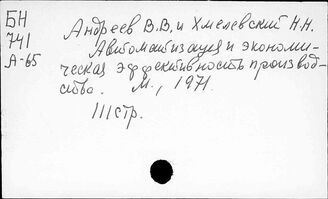 БН
741
А-65
Андреев В.В. и Хмелевский Н.Н.
Автоматизация и экономи-
ческая эффективность производ-
ства. М., 1971.
111 стр.